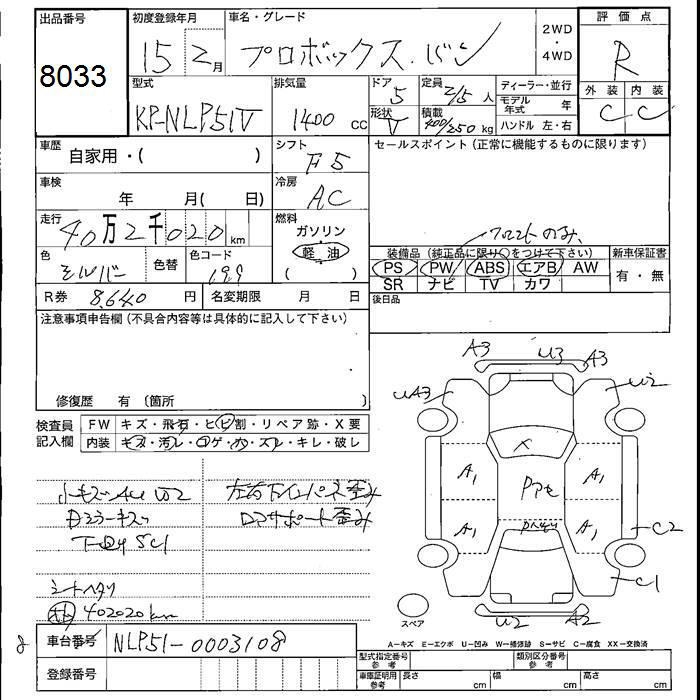 出品番号
8033
初度登録年月
15 2月
車名・グレード
プロボックス.バン
2WD
・
4WD
評価点
R
外装 内装
C C
型式
KP-NLP51V
排気量
1400 cc
ドア
5
形状
V
定員
2/5 人
積載
400/250 kg
ディーラー・並行
モデル年式 年
ハンドル 左・右
車歴
自家用・( )
シフト
F5
セールスポイント (正常に機能するものに限ります)
車検
年 月( 日)
冷房
AC
走行
40万2千020 km
燃料
ガソリン
軽油
( )
フロントのみ
装備品 (純正品に限り○をつけて下さい)
PS PW ABS エアB AW
SR ナビ TV カワ
新車保証書
有・無
色
シルバー
色替
色コード
199
後日品
R券 8640 円
名変期限 月 日
注意事項申告欄 (不具合内容等は具体的に記入して下さい)
修復歴 有 (箇所 )
検査員
記入欄
FW キズ・飛石・ヒビ割・リペア跡・X要
内装 キズ・汚レ・コゲ・カ・スレ・キレ・破レ
小キズ A4 U2
Bミラーキズ
SC1
シートヘタリ
402020km
左右
Dアサポート歪み
A3 U3 A3
UA3
U2
X
A1
A1
A1
A1
C2
C1
U2 A2
スペア
A―キズ E―エクボ U―凹み W―補修跡 S―サビ C―腐食 XX―交換済
8
車台番号
NLP51-0003108
登録番号
型式指定番号
参考
類別区分番号
参考
車庫証明用
参考
長さ cm
幅 cm
高さ cm